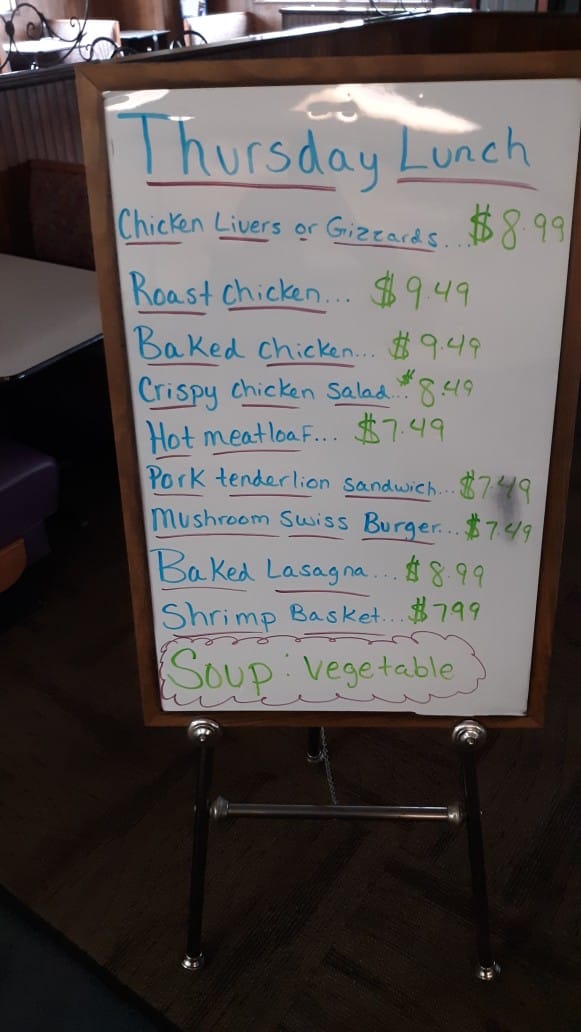 Thursday Lunch
Chicken Livers or Gizzards... $8.99
Roast Chicken... $9.49
Baked Chicken... $9.49
Crispy Chicken Salad... $8.49
Hot meatloaf... $7.49
Pork tenderlion sandwich... $7.49
Mushroom Swiss Burger... $7.49
Baked Lasagna... $8.99
Shrimp Basket... $799
Soup: Vegetable